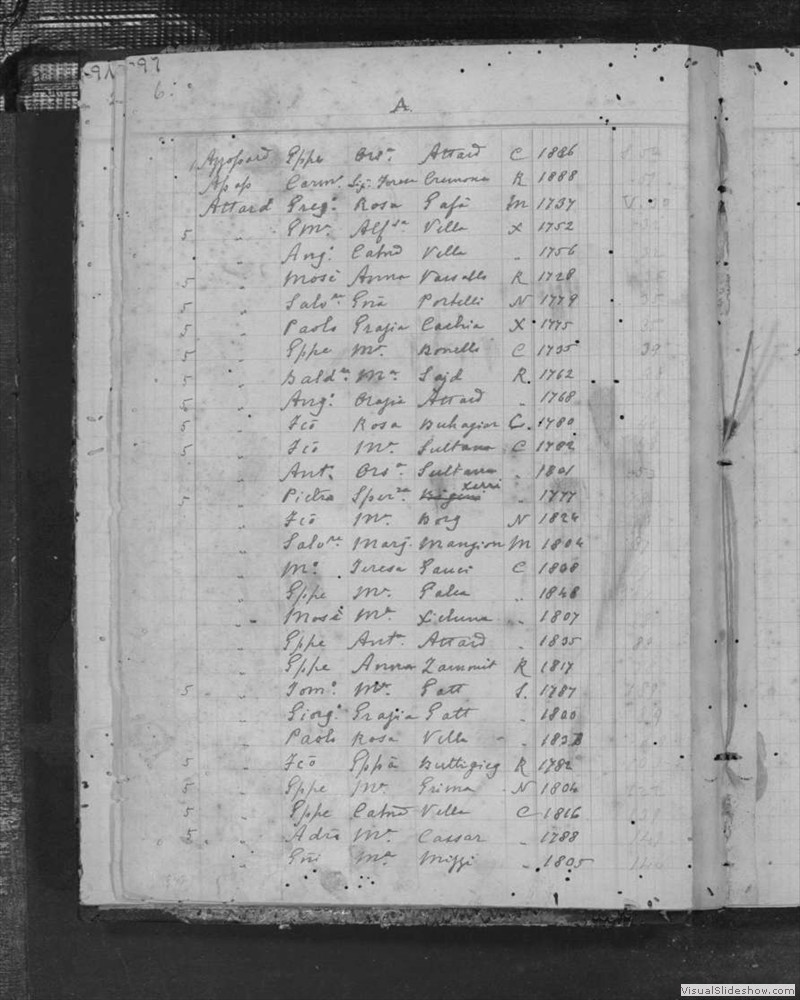 -91-97
6:
A
Appopard Gppe Ors.a Attard C 1886
Apap Carm. Sig. Teresa Cremona R 1888
Attard Greg.o Rosa Gafà M 1737
5 " G.M.a Alf.sa Vella X 1752
" Ang.o Catnà Vella " 1756
5 " Mosè Anna Vassallo R 1728
5 " Salv.re Gnà Portelli N 1779
5 " Paolo Grazia Cachia X 1775
5 " Gppe M.a Bonello C 1735 39
5 " Bald.re M.a Sajd R 1762
5 " Ang.o Grazia Attard " 1768
5 " Fcò Rosa Buhagiar C 1780
5 " Fcò M.a Sultana C 1782
" Ant.o Ors.a Sultana " 1801
5 " Pietro Sper.za Xerri " 1777
" Fcò M.a Borg N 1824
" Salv.re Marg. Mangion M 1804
" M.o Teresa Gauci C 1808
" Gppe M.a Galea " 1848
" Mosè M.a Xicluna " 1807
" Gppe Ant.a Attard " 1835
" Gppe Anna Zammit R 1817
5 " Tom.o M.a Gatt S. 1787
" Giorg.o Grazia Gatt " 1800
" Paolo Rosa Vella "
5 " Fcò Gppa Buttigieg R 1782
5 " Gppe M.a Grima N 1804
5 " Gppe Catnà Vella C 1816
5 " Adrò M.a Cassar " 1788
" Gni M.a Mizzi " 1805
VisualSlideshow.com